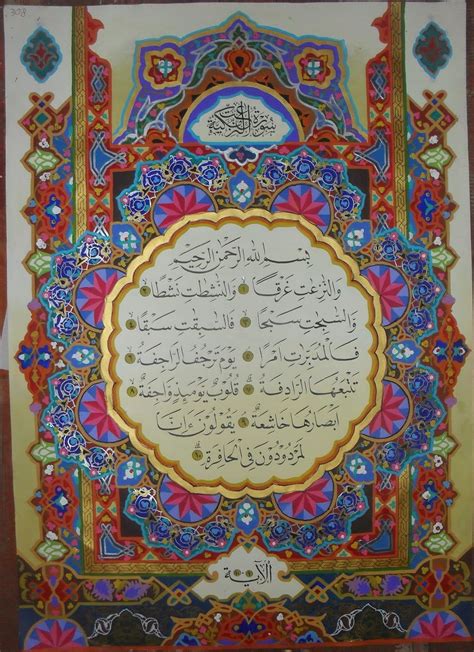 308
سورة النازعات المكية
بسم الله الرحمن الرحيم
والنزعت غرقا ١ والنشطت نشطا ٢
والسبحت سبحا ٣ فالسبقت سبقا ٤
فالمدبرت امرا ٥ يوم ترجف الراجفة ٦
تتبعها الرادفة ٧ قلوب يومئذ واجفة ٨
ابصارها خاشعة ٩ يقولون ءانا
لمردودون في الحافرة ١٠
الآية